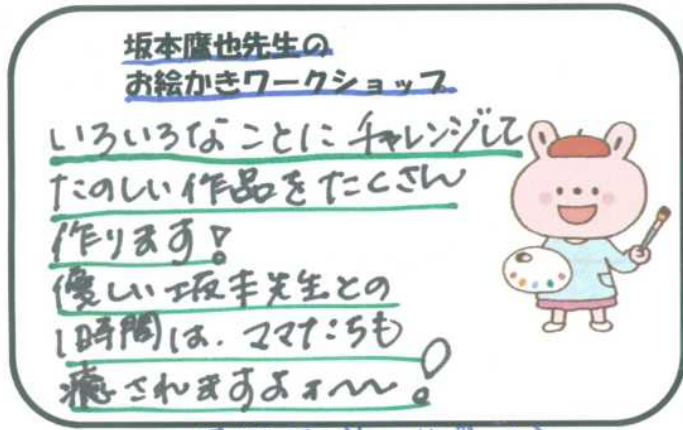 坂本鷹也先生の
お絵かきワークショップ
いろいろなことにチャレンジして
たのしい作品をたくさん
作ります!
優しい坂本先生との
1時間は、ママたちも
癒されますよォ〜〜!